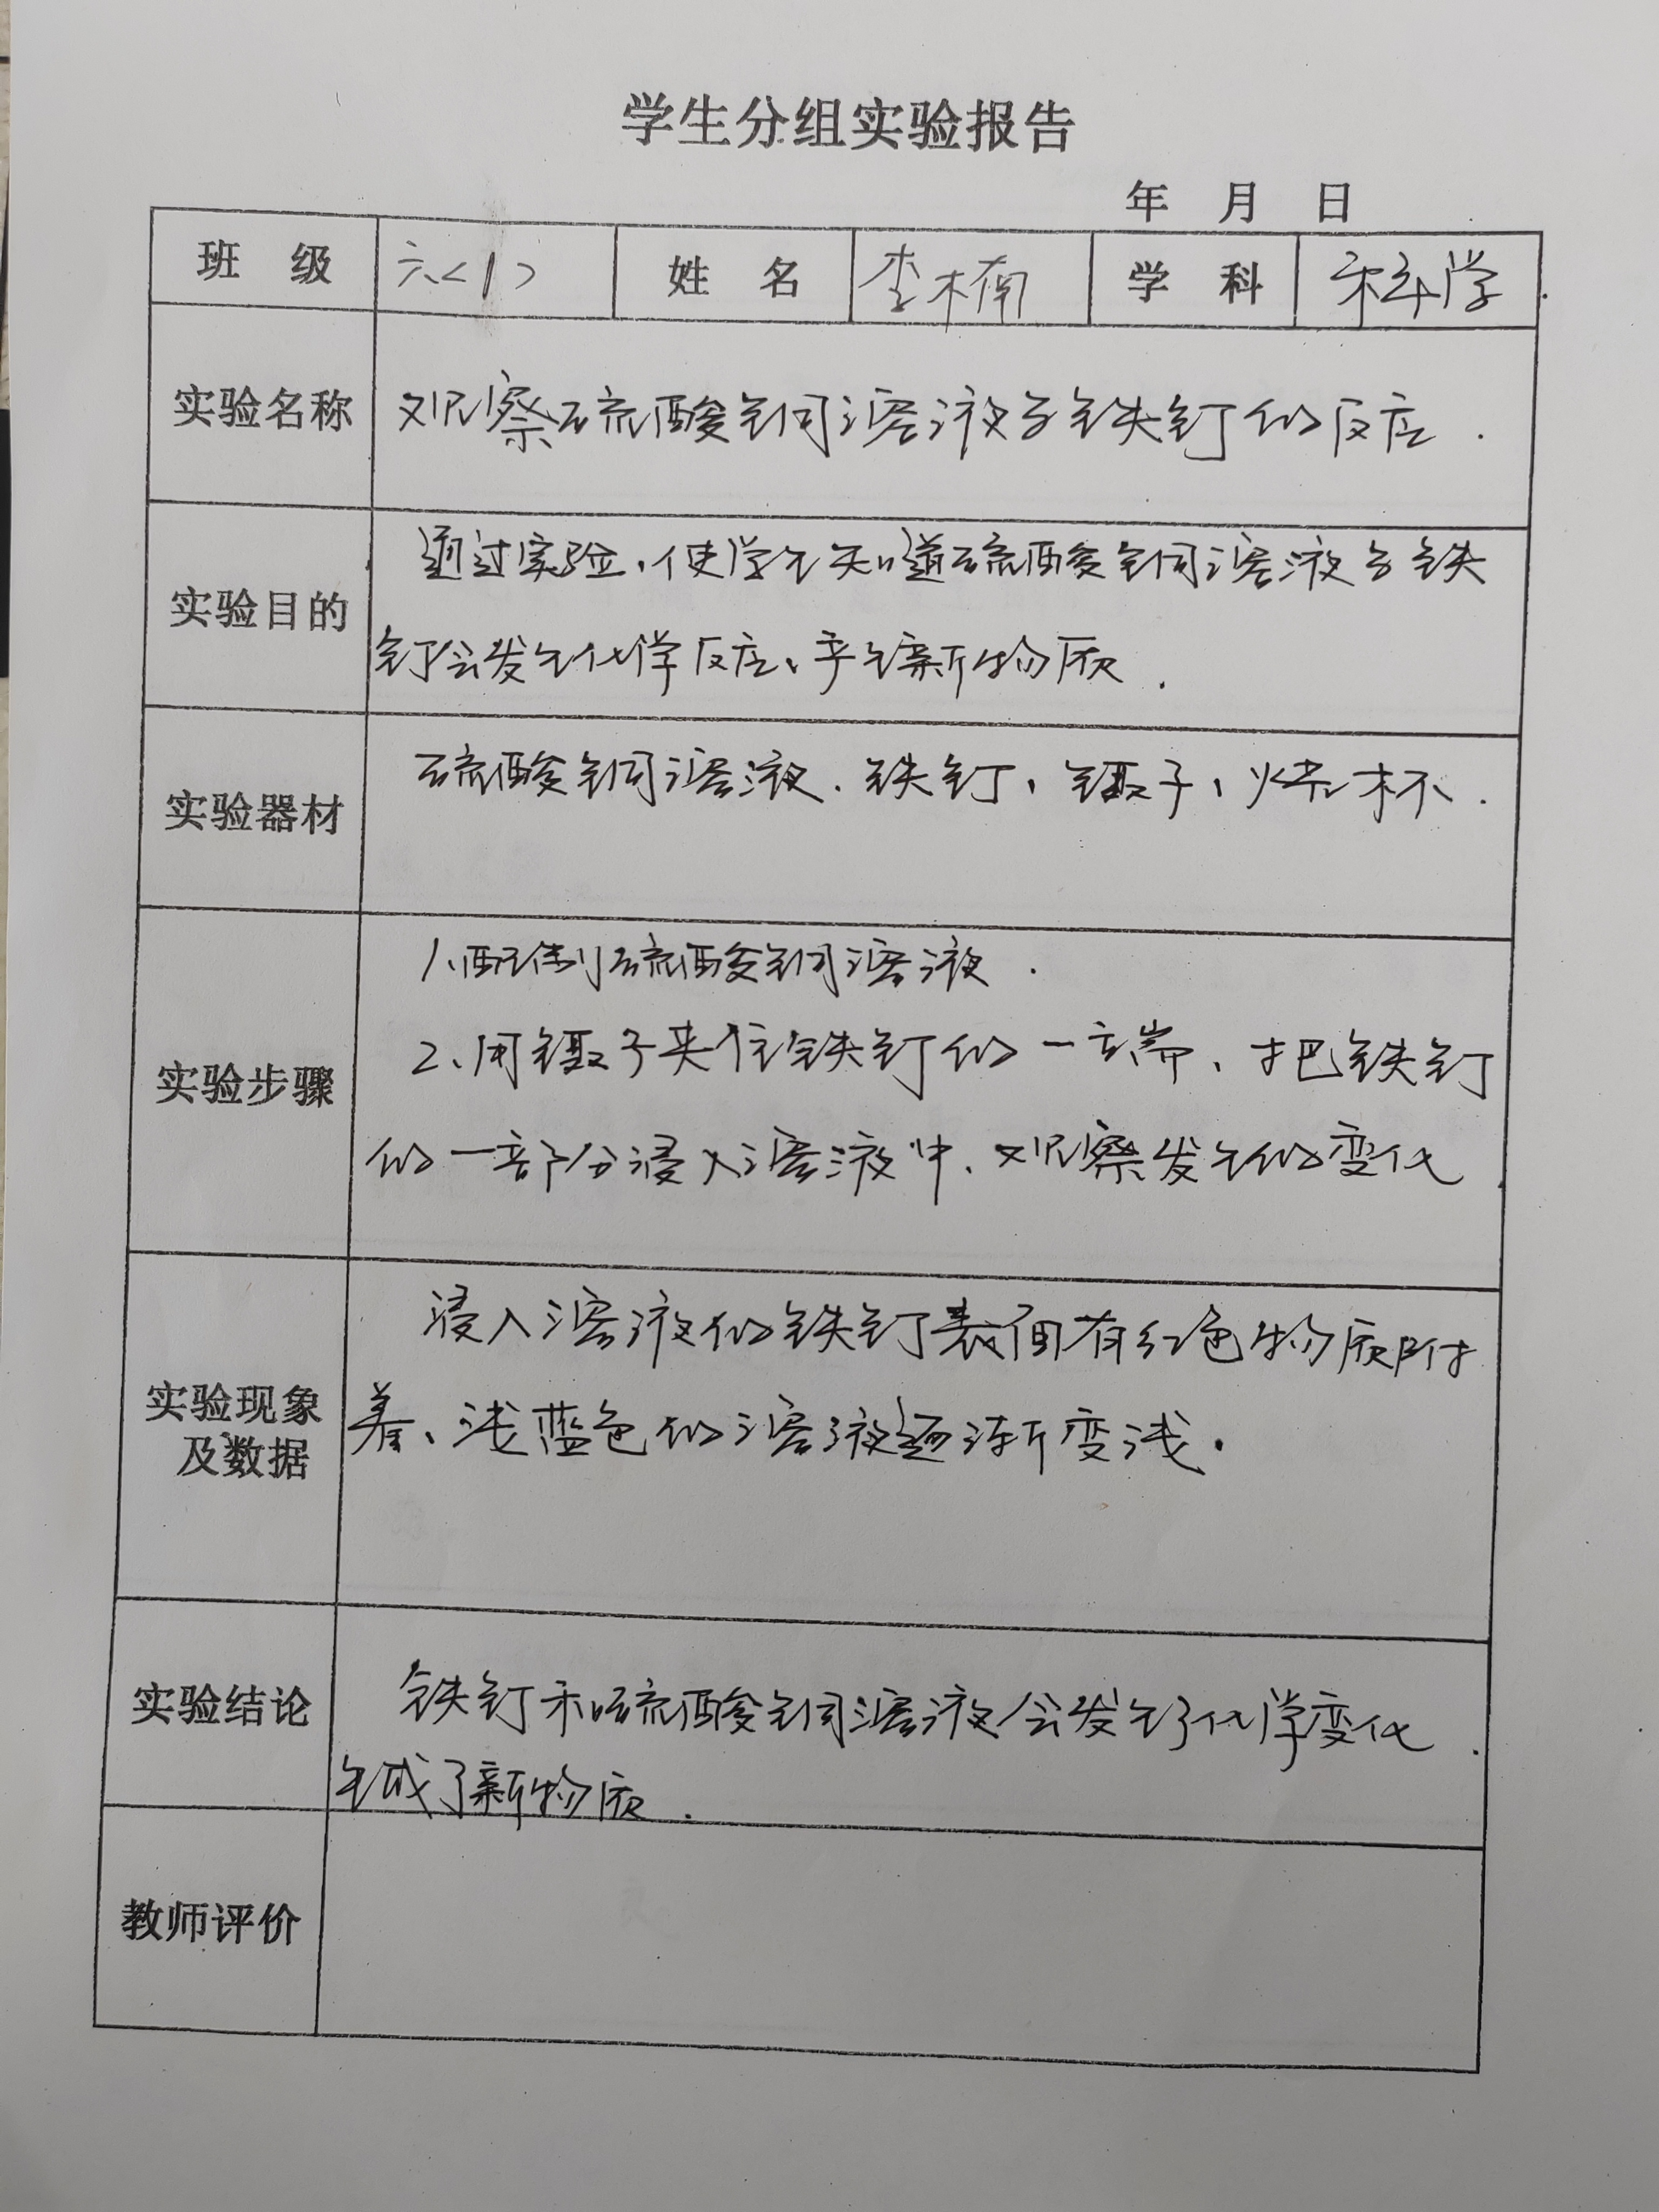 学生分组实验报告
年 月 日
班 级 六<1> 姓 名 李楠 学 科 科学
实验名称 观察硫酸铜溶液与铁钉的反应.
实验目的 通过实验,使学生知道硫酸铜溶液与铁
钉会发生化学反应、产生新物质.
实验器材 硫酸铜溶液、铁钉、镊子、烧杯.
实验步骤 1、配制硫酸铜溶液.
2、用镊子夹住铁钉的一端、把铁钉
的一部分浸入溶液中、观察发生的变化
实验现象
及数据 浸入溶液的铁钉表面有红色物质附
着、浅蓝色的溶液逐渐变浅.
实验结论 铁钉和硫酸铜溶液会发生了化学变化.
生成了新物质.
教师评价